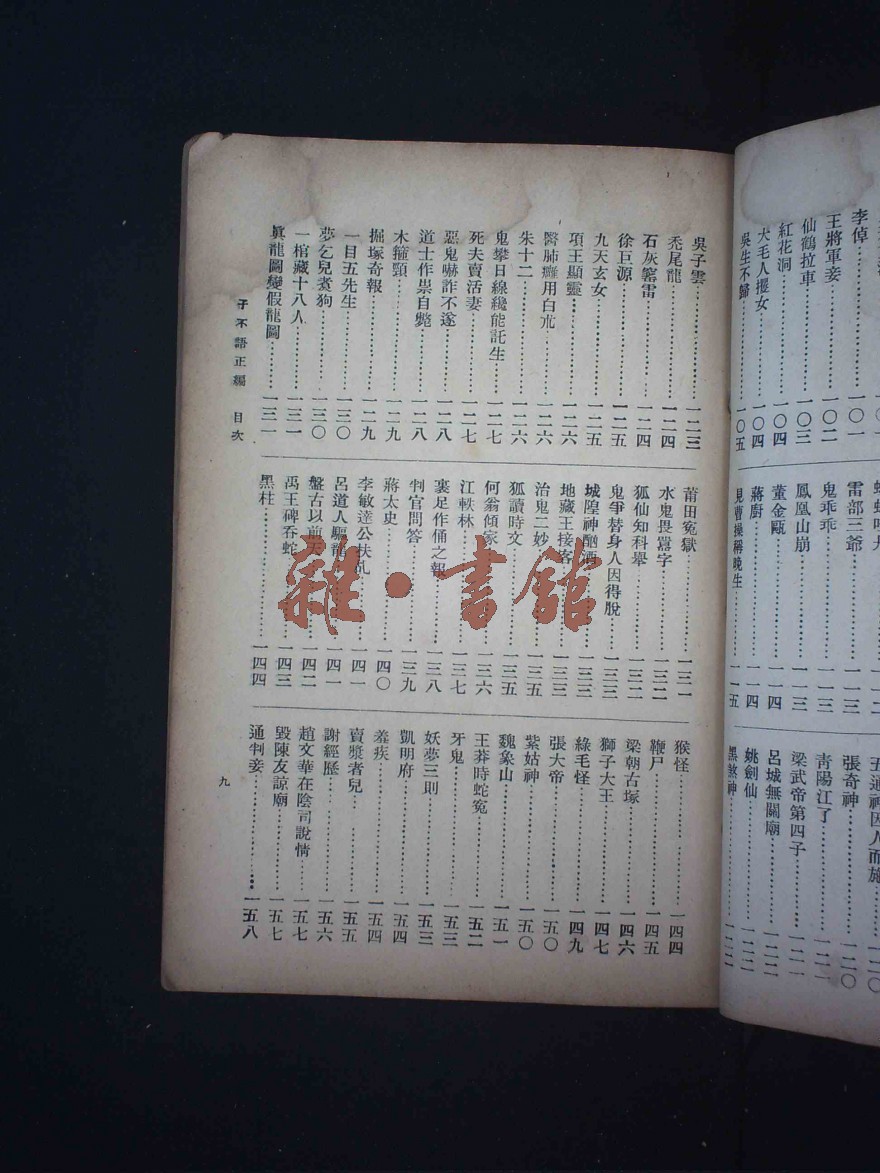 李倬…………一〇一
王將軍妾…………一〇二
仙鶴拉車…………一〇三
紅花洞…………一〇四
大毛人攫女…………一〇四
吳生不歸…………一〇五
雷部三爺…………一一二
鬼乖乖…………一一三
鳳凰山崩…………一一三
董金甌…………一一四
蔣廚…………一一四
見曹操稱晚生…………一一五
五通神因人而施…………一二〇
張奇神…………一二〇
青陽江了…………一二一
梁武帝第四子…………一二一
呂城無關廟…………一二二
姚劍仙…………一二二
黑煞神…………一二二
吳子雲…………一二三
禿尾龍…………一二四
石灰窰雷…………一二四
徐巨源…………一二五
九天玄女…………一二五
項王顯靈…………一二六
醫肺癰用白朮…………一二六
朱十二…………一二六
鬼攀日線纔能託生…………一二七
死夫賣活妻…………一二七
惡鬼嚇詐不遂…………一二八
道士作祟自斃…………一二八
木箍頸…………一二九
掘塚奇報…………一二九
一目五先生…………一三〇
夢乞兒煮狗…………一三〇
一棺藏十八人…………一三一
真龍圖變假龍圖…………一三一
莆田冤獄…………一三一
水鬼畏囂字…………一三二
狐仙知科舉…………一三二
鬼爭替身人因得脫…………一三三
城隍神酗酒…………一三三
地藏王接客…………一三三
治鬼二妙…………一三五
狐讀時文…………一三五
何翁傾家…………一三六
江軼林…………一三七
裹足作俑之報…………一三八
判官問答…………一三九
蔣太史…………一四〇
李敏達公扶乩…………一四一
呂道人驅龍…………一四一
盤古以前天…………一四二
禹王碑吞蛇…………一四三
黑柱…………一四四
猴怪…………一四四
鞭尸…………一四五
梁朝古塚…………一四六
獅子大王…………一四七
綠毛怪…………一四九
張大帝…………一五〇
紫姑神…………一五〇
魏象山…………一五一
王莽時蛇冤…………一五二
牙鬼…………一五三
妖夢三則…………一五三
凱明府…………一五四
羞疾…………一五四
賣漿者兒…………一五五
謝經歷…………一五六
趙文華在陰司說情…………一五七
毀陳友諒廟…………一五七
通判妾…………一五八
子不語正編 目次
九
雜·書館